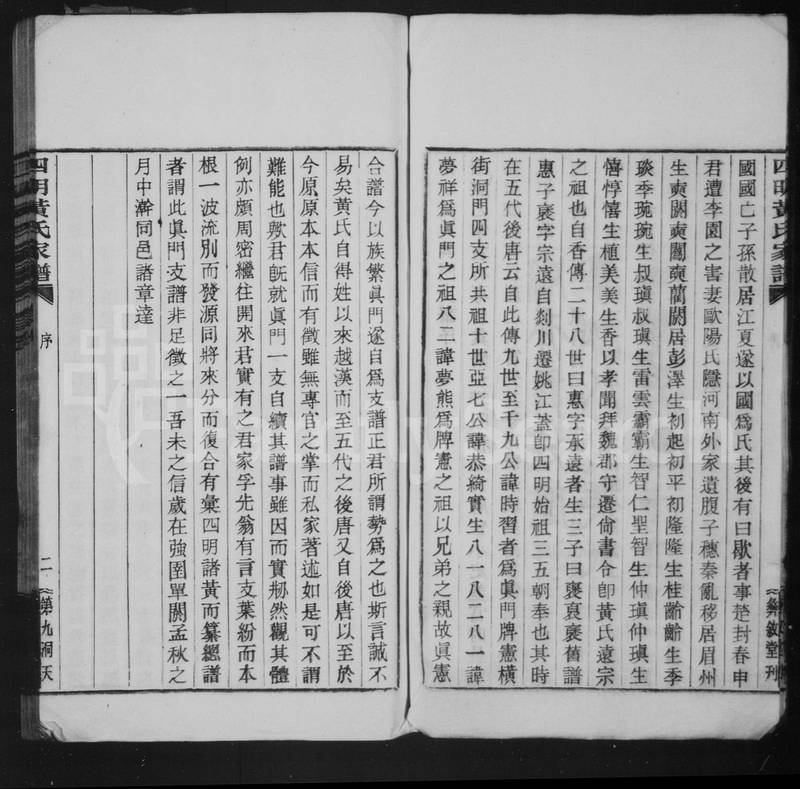 四明黃氏家譜
彝敘堂刊
國國亡子孫散居江夏遂以國爲氏其後有曰歇者事楚封春申
君遭李園之害妻歐陽氏隱河南外家遺腹子穗秦亂移居眉州
生奭闕奭闔奭藺闕居彭澤生初起初平初隆隆生桂齡齡生季
琰季琬琬生叔瑱叔瑱生雷雲霸霸生智仁聖智生仲瑱仲瑱生
僖惇僖生植美美生香以孝聞拜魏郡守遷尙書令卽黃氏遠宗
之祖也自香傳二十八世曰惠字承遠者生三子曰褒裒褎舊譜
惠子褎字宗遠自剡川遷姚江蓋卽四明始祖三五朝奉也其時
在五代後唐云自此傳九世至千九公諱時習者爲眞門牌憲橫
街洞門四支所共祖十世亞七公諱恭綺實生八一八二八一諱
夢祥爲眞門之祖八二諱夢熊爲牌憲之祖以兄弟之親故眞憲
合譜今以族繁眞門遂自爲支譜正君所謂勢爲之也斯言誠不
易矣黃氏自得姓以來越漢而至五代之後唐又自後唐以至於
今原原本本信而有徵雖無專官之掌而私家著述如是可不謂
難能也歟君旣就眞門一支自續其譜事雖因而實刱然觀其體
例亦頗周密繼往開來君實有之君家孚先翁有言支葉紛而本
根一波流別而發源同將來分而復合有彙四明諸黃而纂總譜
者謂此眞門支譜非足徵之一吾未之信歲在強圉單閼孟秋之
月中澣同邑諸章達
四明黃氏家譜
序
二
第九洞天